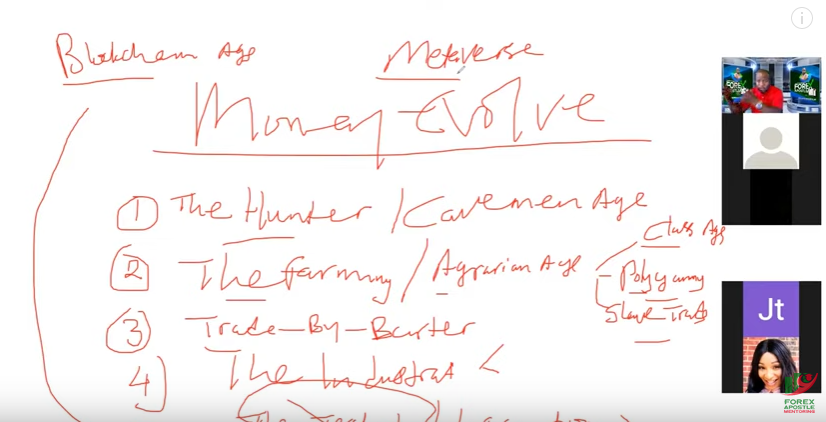 Blockchain Age
Metaverse
Money Evolve
1 The Hunter / Cavemen Age
2 The farming / Agrarian Age
Class Age
- Polygammy
Slave Trade
3 Trade-By-Barter
4 The Industrial <
The
Jt
FOREX
APOSTLE
MENTORING